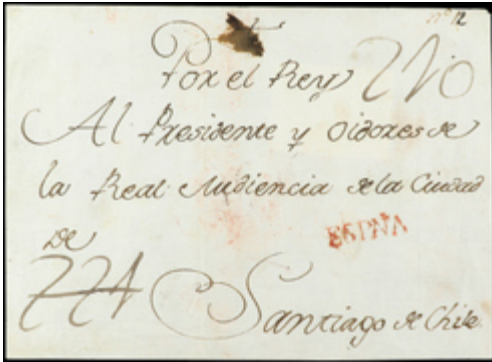 nº 12
Por el Rey
Al Presidente y oidores de
la Real Audiencia de la Ciudad
de
ESPÑA
Santiago de Chile